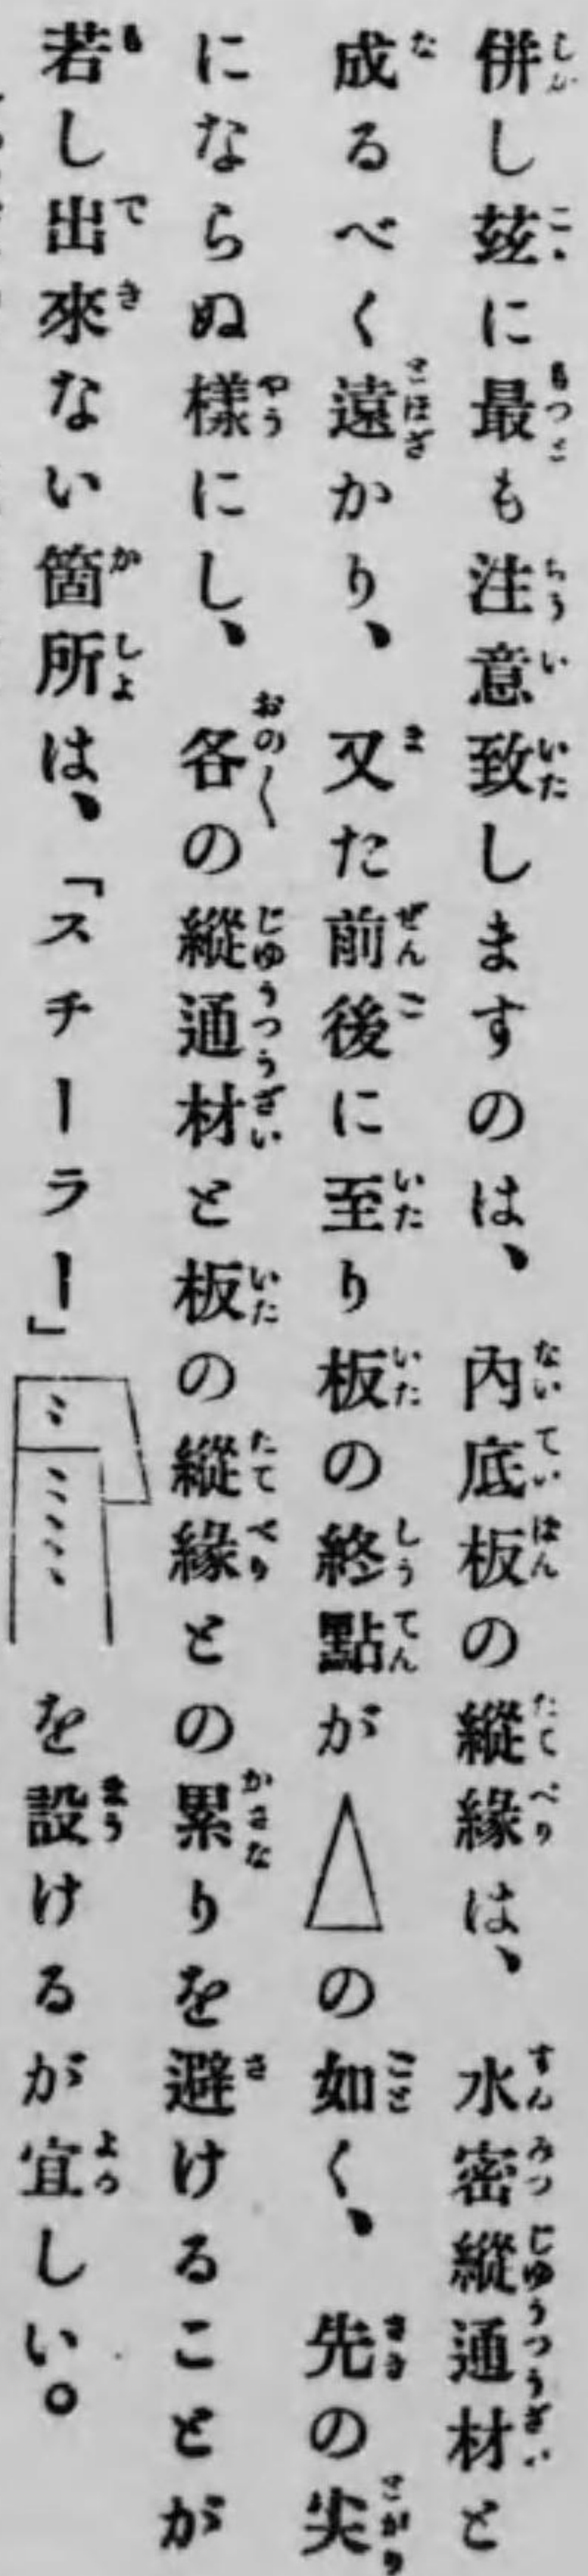 併し玆に最も注意致しますのは、內底板の縱緣は、水密縱通材と
成るべく遠かり、又た前後に至り板の終點が△の如く、先の尖
にならぬ樣にし、各の縱通材と板の縱緣との累りを避けることが
若し出來ない箇所は、「スチーラー」を設けるが宜しい。